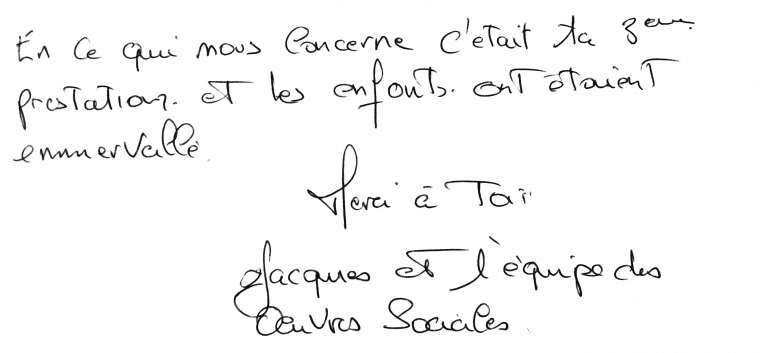 En ce qui nous concerne c'était ta 3eme
prestation. et les enfants. ont étaient
emmervallé.
Merci à Toi
Jacques et l'équipe des
Œuvres Sociales.